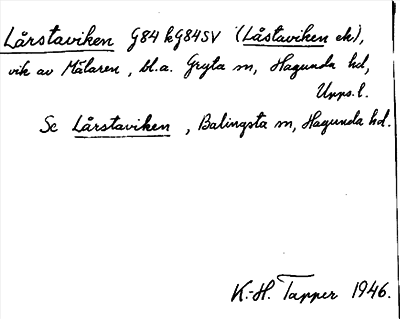 Lårstaviken G84 kG84SV (Låstaviken ek),
vik av Mälaren, bl.a. Gryta sn, Hagunda hd,
Upps.l.
Se Lårstaviken, Balingsta sn, Hagunda hd.
K.-H. Tapper 1946.